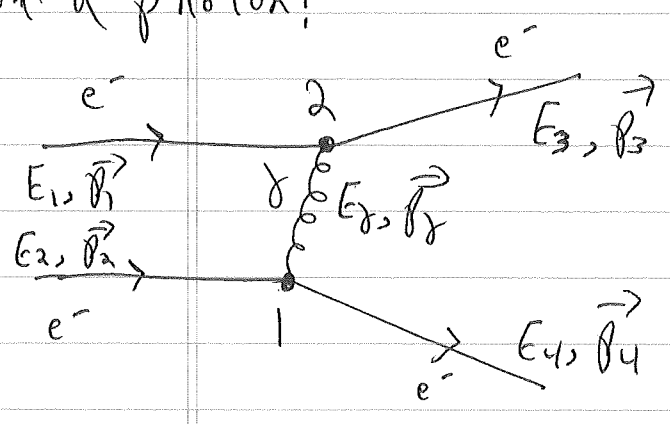 a photon!
e⁻
e⁻
2
E₃, p⃗₃
E₁, p⃗₁
γ
Eγ, p⃗γ
E₂, p⃗₂
e⁻
1
E₄, p⃗₄
e⁻